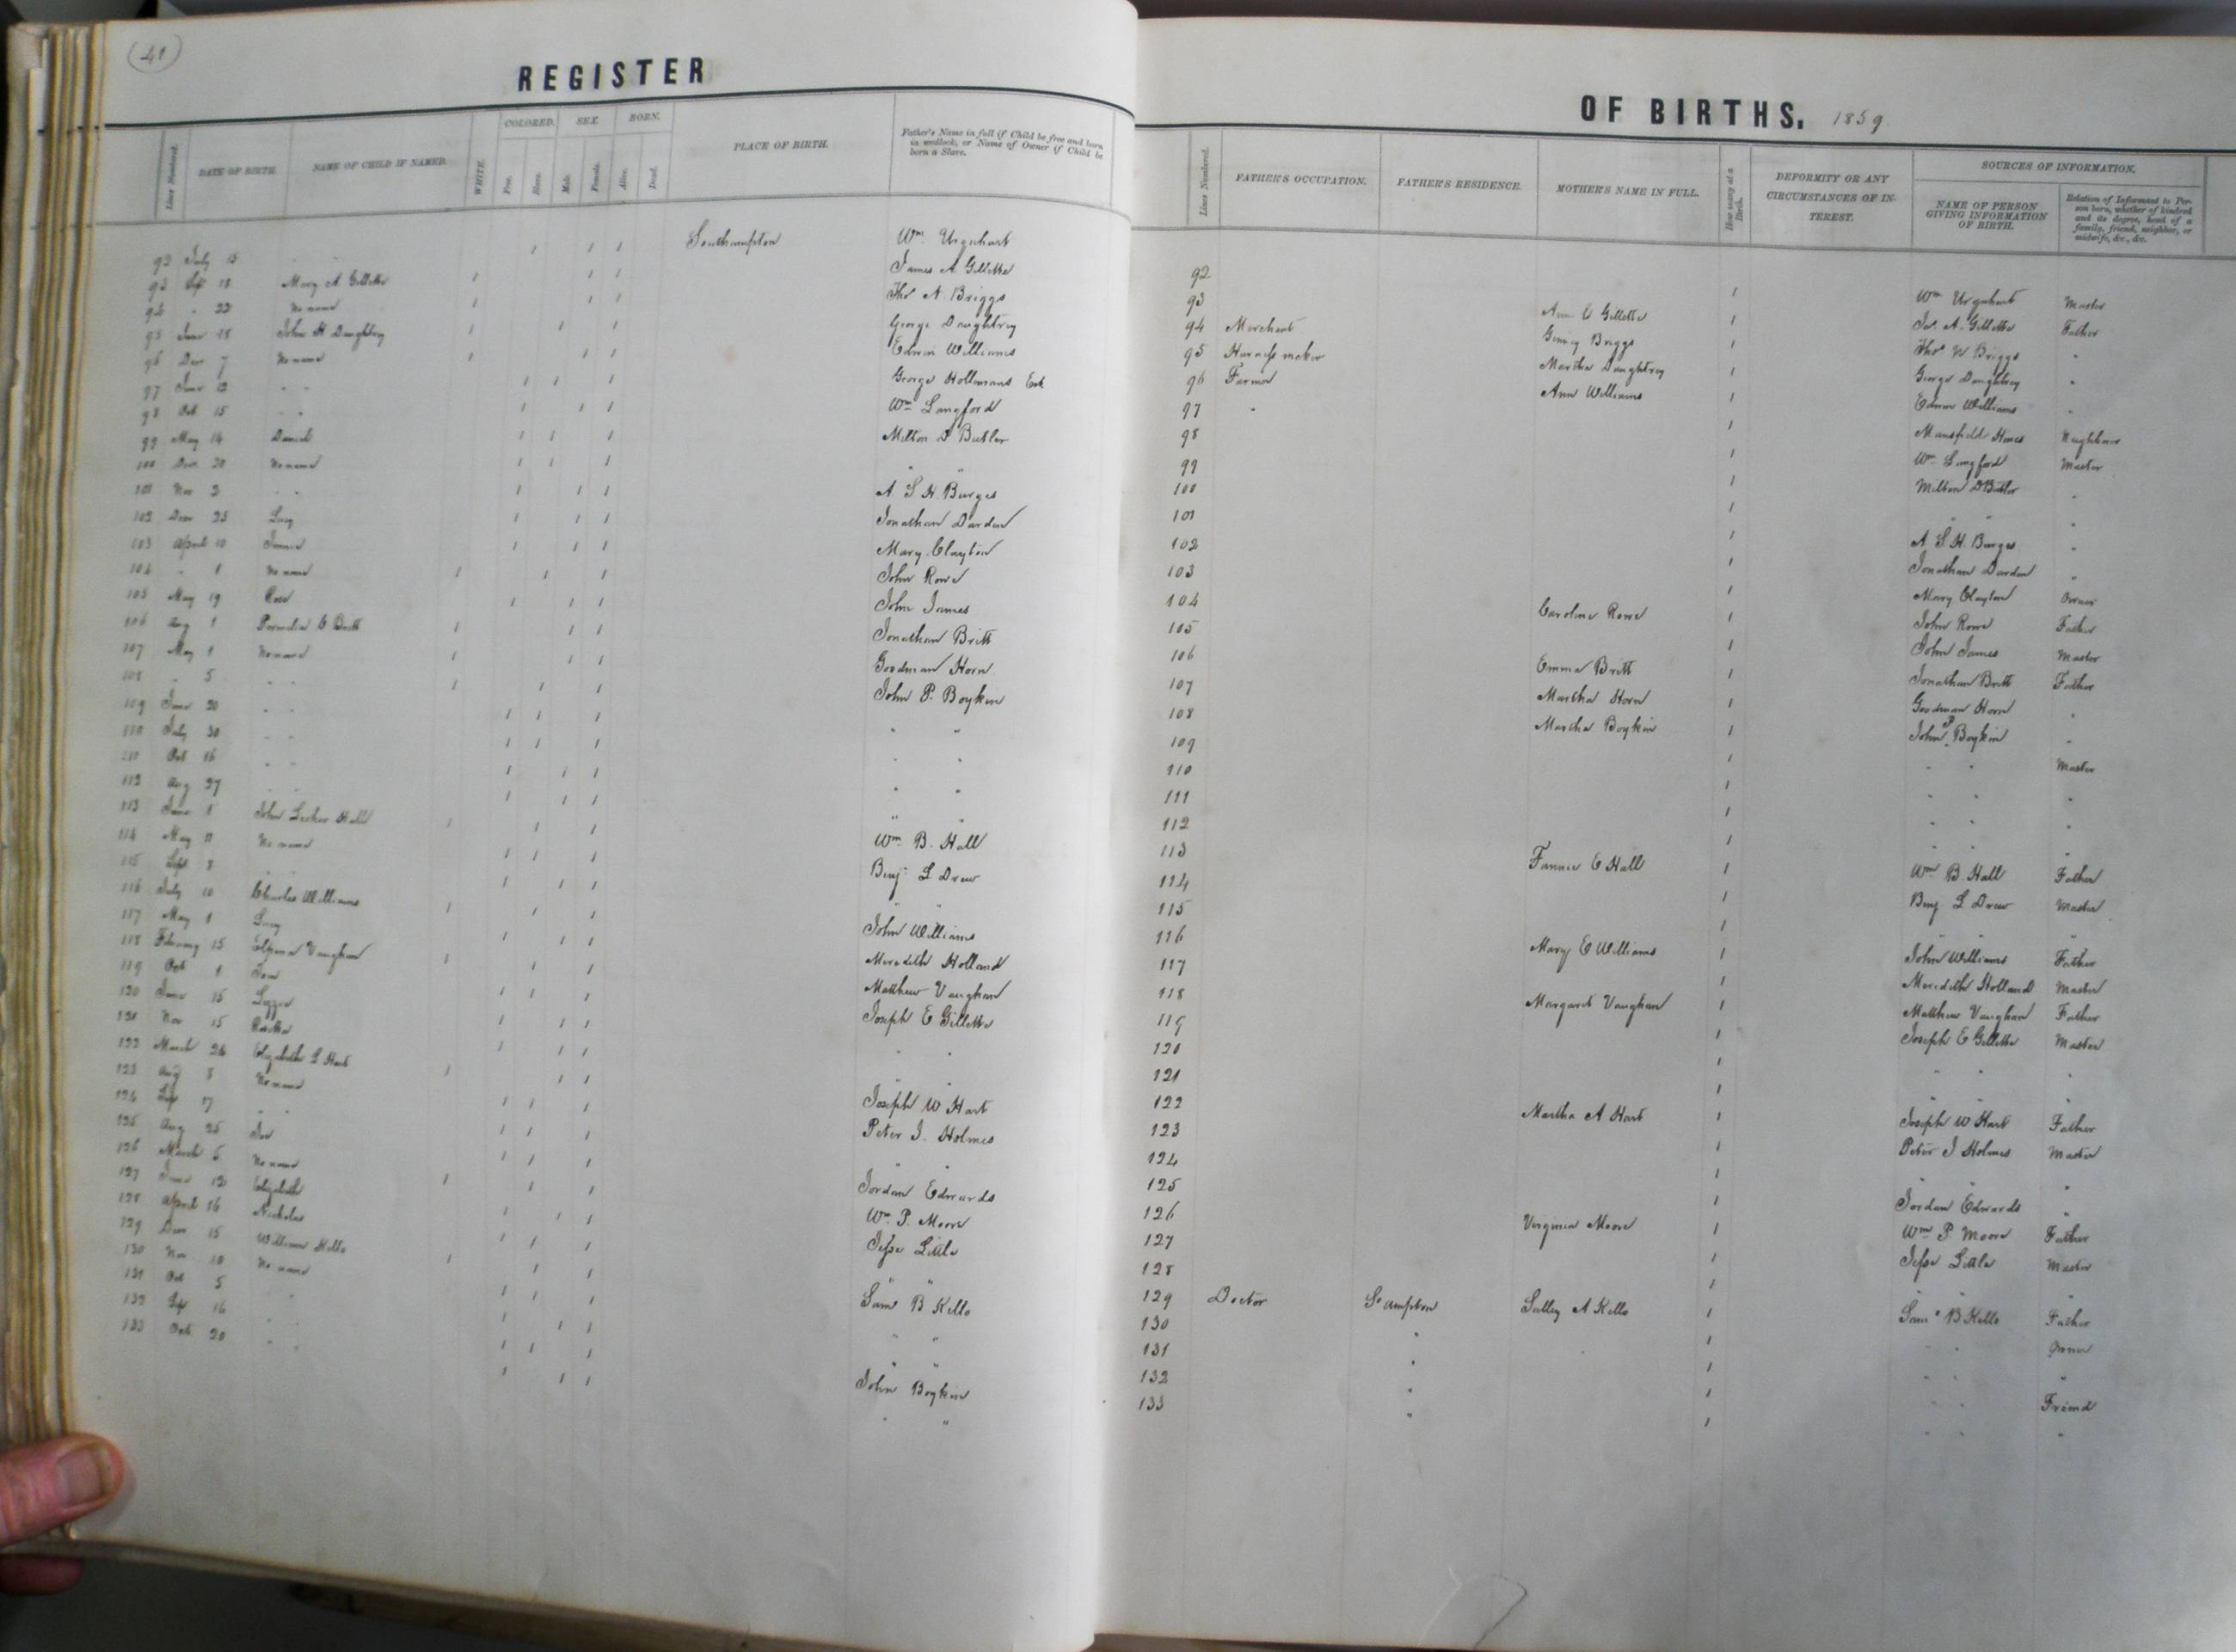 41
REGISTER
Lines Numbered. DATE OF BIRTH. NAME OF CHILD IF NAMED. WHITE. COLORED. Free. Slave. SEX. Male. Female. BORN. Alive. Dead. PLACE OF BIRTH. Father's Name in full if Child be free and born in wedlock, or Name of Owner if Child be born a Slave.
92 July 15 " " Southampton Wm Urquhart
93 Sep 18 Mary A. Gillette James A Gillette
94 " 23 No name Tho' N. Briggs
95 June 18 John H Daughtrey George Daughtrey
96 Dec 7 No name Edwin Williams
97 June 12 " " George Hollemans Est
98 Oct 15 " " Wm Langford
99 May 14 Daniel Milton D Butler
100 Dec 20 No name " "
101 Nov 2 " " A S H Burges
102 Dec 25 Lucy Jonathan Darden
103 April 10 Mary Clayton
104 " 1 No name John Rowe
105 May 19 Rose John James
106 Aug 1 Permelia C Britt Jonathan Britt
107 May 1 No name Goodman Horn
108 " 5 " " John P. Boykin
109 June 20 " " " "
110 July 30 " " " "
111 Oct 16 " " " "
112 Aug 27 " " " "
113 June 1 John Letcher Hall Wm B. Hall
114 May 11 No name Benj. L Drew
115 Sept 8 " " " "
116 July 10 Charles Williams John Williams
117 May 1 Lucy Meredith Holland
118 February 15 Vaughan Matthew Vaughan
119 Oct 1 Joseph E Gillette
120 June 15 " "
121 Nov 15 " "
122 March 26 Elizabeth L Hart Joseph W Hart
123 Aug 8 No name Peter J. Holmes
124 Sep 17 " " " "
125 Aug 25 Joe Jordan Edwards
126 March 5 No name Wm P. Moore
127 June 12 Elizabeth Jesse Little
128 April 16 Nicholas " "
129 Dec 15 William Kello Sam B Kello
130 Nov 10 No name " "
131 Oct 5 " " "
132 Sep 16 " " John Boykin
133 Oct 20 " " " "
OF BIRTHS. 1859.
Lines Numbered. FATHER'S OCCUPATION. FATHER'S RESIDENCE. MOTHER'S NAME IN FULL. How many at a Birth. DEFORMITY OR ANY CIRCUMSTANCES OF INTEREST. SOURCES OF INFORMATION. NAME OF PERSON GIVING INFORMATION OF BIRTH. Relation of Informant to Person born, whether of kindred and its degree, head of a family, friend, neighbor, or midwife, &c., &c.
92 Wm Urquhart Master
93 Ann E Gillette Jas. A. Gillette Father
94 Merchant Briggs Thos N Briggs "
95 Harness maker Martha Daughtrey George Daughtrey "
96 Farmer Ann Williams Edwin Williams "
97 " Mansfield Hines Neighbour
98 Wm Langford Master
99 Milton D Butler "
100 " " "
101 A. S. H. Burges "
102 Jonathan Darden "
103 Mary Clayton Owner
104 Caroline Rowe John Rowe Father
105 John James Master
106 Emma Britt Jonathan Britt Father
107 Martha Horn Goodman Horn "
108 Martha Boykin John P Boykin "
109 " " Master
110 " " "
111 " " "
112 " " "
113 Fannie E Hall Wm B. Hall Father
114 Benj L Drew Master
115 " "
116 Mary E Williams John Williams Father
117 Meredith Holland Master
118 Margaret Vaughan Matthew Vaughan Father
119 Joseph E Gillette Master
120 " " "
121 " " "
122 Martha A Hart Joseph W Hart Father
123 Peter J Holmes Master
124 " " "
125 Jordan Edwards "
126 Virginia Moore Wm P Moore Father
127 Jesse Little Master
128 " " "
129 Doctor So ampton Salley A Kello Sam B Kello Father
130 " " " Owner
131 " " " "
132 " " " Friend
133 " " " "